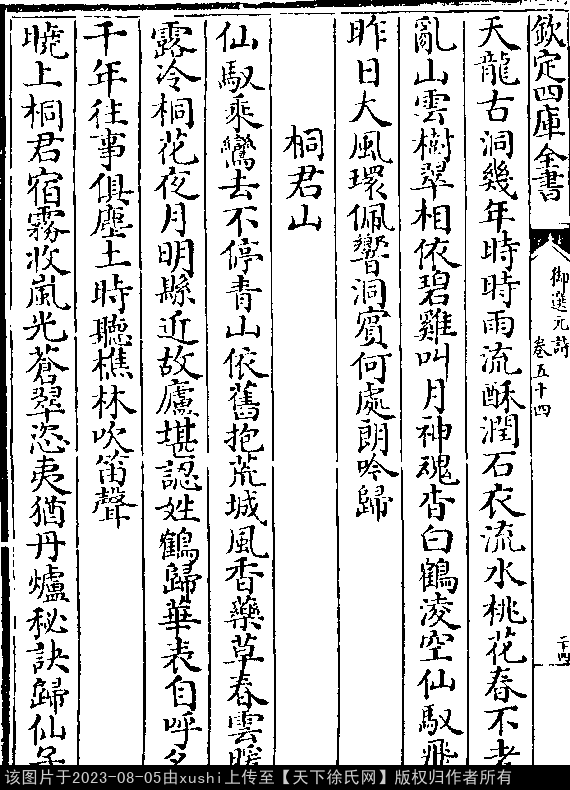 欽定四庫全書
御選元詩
卷五十四
二十四
天龍古洞幾年時時雨流酥潤石衣流水桃花春不老
亂山雲樹翠相依碧雞叫月神魂杳白鶴凌空仙馭飛
昨日大風環佩響洞賓何處朗吟歸
桐君山
仙馭乘鸞去不停青山依舊抱荒城風香藥草春雲暖
露冷桐花夜月明縣近故廬堪認姓鶴歸華表自呼名
千年往事俱塵土時聽樵林吹笛聲
曉上桐君宿霧收嵐光蒼翠恣夷猶丹爐秘訣歸仙
该图片于2023-08-05由xushi上传至【天下徐氏网】版权归作者所有